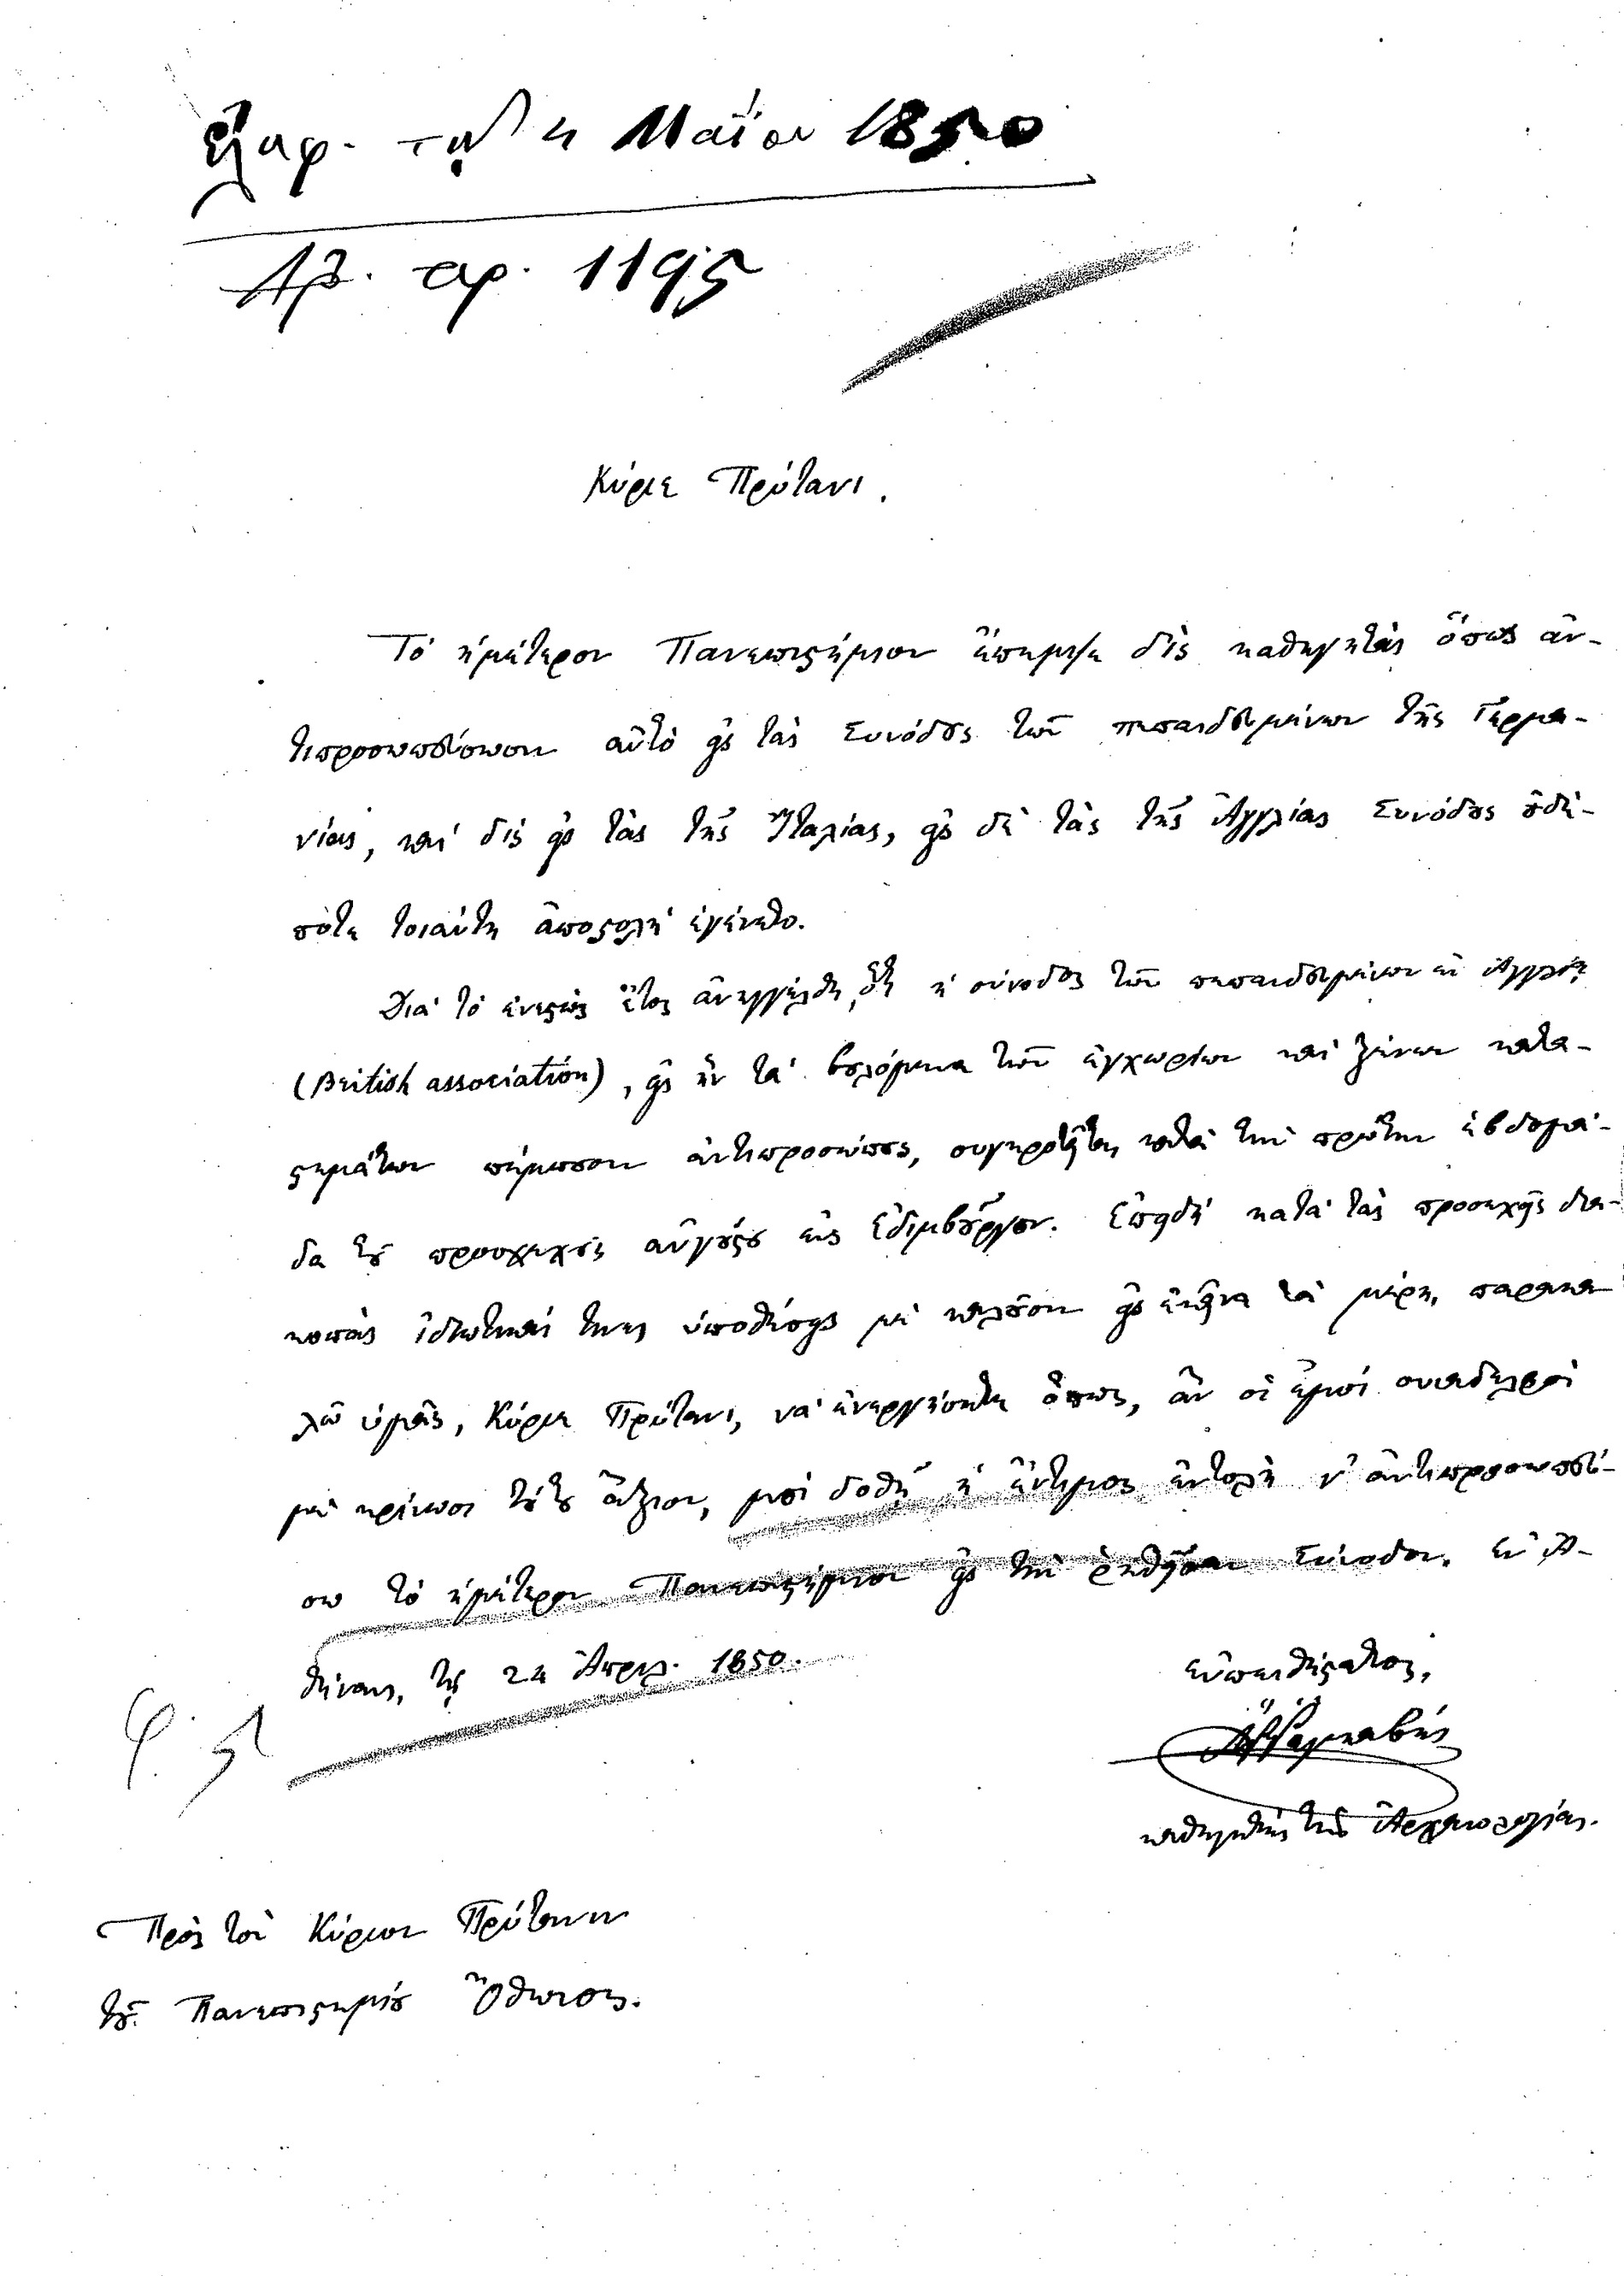 ἐλήφ. τῇ 4 Μαΐου 1850
Ἀρ. πρ. 1195
Κύριε Πρύτανι.
Τὸ ἡμέτερον Πανεπιστήμιον ἔπεμψε δὶς καθηγητὰς ὅπως ἀν-
τιπροσωπεύσωσιν αὐτὸ εἰς τὰς Συνόδους τῶν πεπαιδευμένων τῆς Γερμα-
νίας, καὶ δὶς εἰς τὰς τῆς Ἰταλίας, εἰς δὲ τὰς τῆς Ἀγγλίας Συνόδους οὐδέ-
ποτε τοιαύτη ἀποστολὴ ἐγένετο.
Διὰ τὸ ἐνεστὼς ἔτος ἀνηγγέλθη, ὅτι ἡ σύνοδος τῶν πεπαιδευμένων ἐν Ἀγγλίᾳ
(British association), εἰς ἣν τὰ βουλόμενα τῶν ἐγχωρίων καὶ ξένων κατα-
στημάτων πέμπουσιν ἀντιπροσώπους, συγκροτεῖται κατὰ τὴν πρώτην ἑβδομά-
δα τοῦ προσεχοῦς αὐγούστου εἰς Ἐδιμβοῦργον. Ἐπειδὴ κατὰ τὰς προσεχεῖς δια-
κοπὰς ἰδιωτικαί τινες ὑποθέσεις μὲ καλοῦσιν εἰς ἐκεῖνα τὰ μέρη, παρακα
λῶ ὑμᾶς, Κύριε Πρύτανι, νὰ ἐνεργήσητε ὅπως, ἂν οἱ ἐμοὶ συνάδελφοι
μὲ κρίνωσι τούτου ἄξιον, μοὶ δοθῇ ἡ ἔντιμος ἐντολὴ ν' ἀντιπροσωπεύ-
σω τὸ ἡμέτερον Πανεπιστήμιον εἰς τὴν ῥηθεῖσαν Σύνοδον. Ἐν Ἀ-
θήναις, τῇ 24 Ἀπριλ. 1850.
εὐπειθέστατος,
Ἀ. Ῥ. Ῥαγκαβής
καθηγητὴς τῆς Ἀρχαιολογίας.
Πρὸς τὸν Κύριον Πρύτανιν
τοῦ Πανεπιστημίου Ὄθωνος.